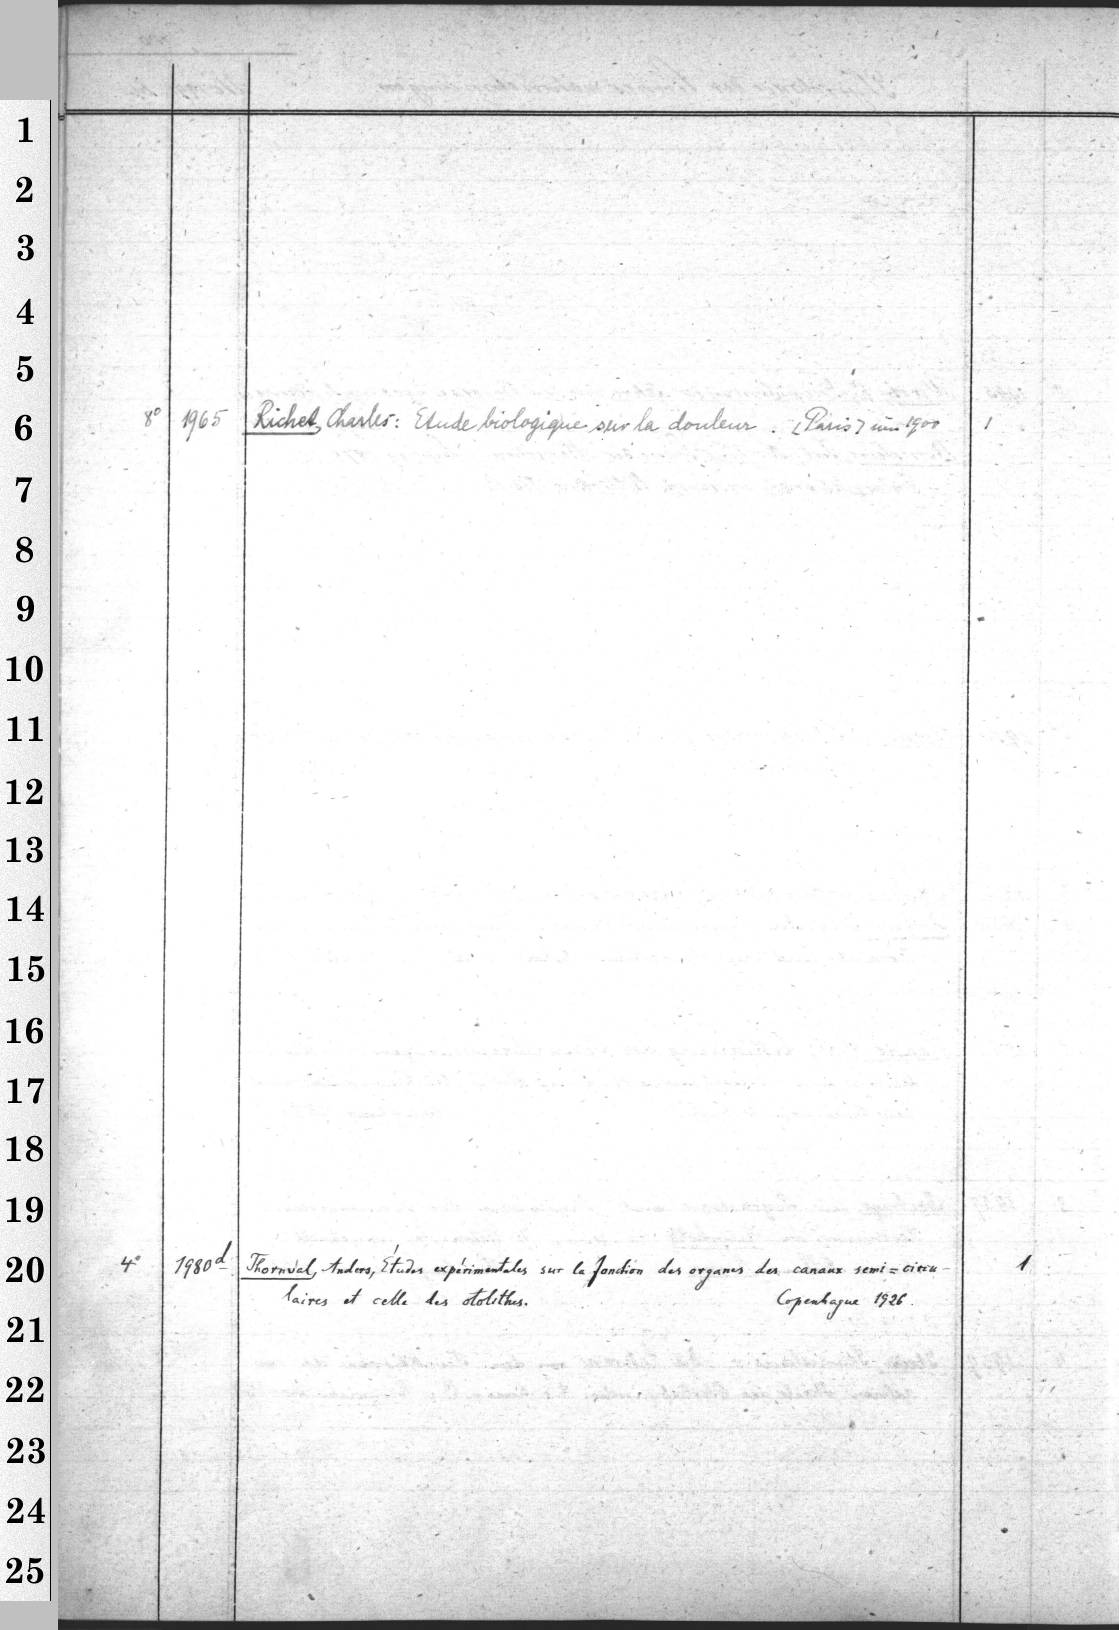 1
2
3
4
5
8° 1965 Richet, Charles: Etude biologique sur la douleur. [Paris] um 1900 1
6
7
8
9
10
11
12
13
14
15
16
17
18
19
4° 1980d Thornval, Anders, Études expérimentales sur la fonction des organes des canaux semi=circu-
20
laires et celle des otolithes. Copenhague 1926.
21
22
23
24
25